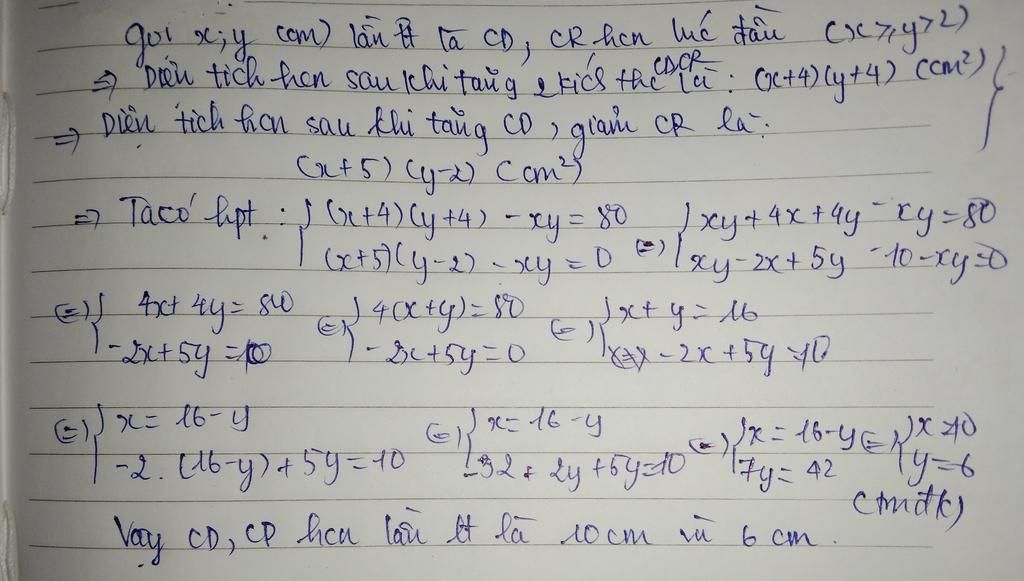 gọi x; y (cm) lần lt là CD, CR hcn lúc đầu (x>,y>2)
=> Diện tích hcn sau khi tăng 2 kích thc CDCR là: (x+4)(y+4) (cm²)
=> Diện tích hcn sau khi tăng CD, giảm CR là:
(x+5)(y-2) (cm²)
=> Ta có hpt: { (x+4)(y+4) - xy = 80 { xy + 4x + 4y - xy = 80
(x+5)(y-2) - xy = 0 (=) xy - 2x + 5y - 10 - xy = 0
(=) { 4x + 4y = 80 (=) { 4(x+y) = 80 (=) { x + y = 16
-2x + 5y = 10 -2x + 5y = 0 -2x + 5y = 10
(=) { x = 16 - y (=) { x = 16 - y (=) { x = 16 - y (=) { x = 10
-2.(16-y) + 5y = 10 -32 + 2y + 5y = 10 7y = 42 y = 6
(tmđk)
Vậy CD, CR hcn lần lt là 10 cm và 6 cm.